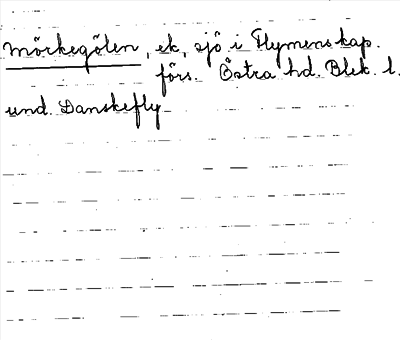 Mörkegölen, ek, sjö i Flymens kap.
förs. Östra hd. Blek. l.
und. Danskefly